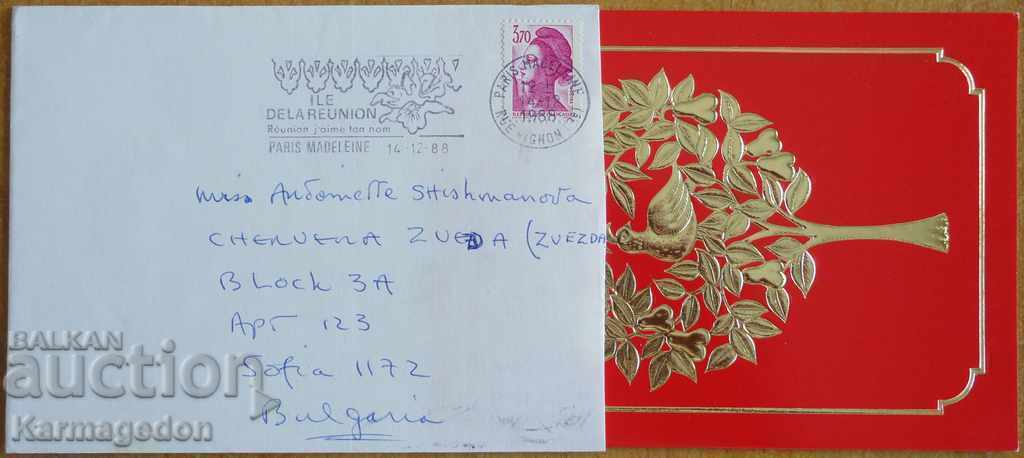 3,70
ILE
DE LA REUNION
Réunion j'aime ton nom
PARIS MADELEINE 14-12-88
PARIS MADELEINE
1988
RUE VIGNON
Miss Antoinette Shishmanova
CHERVENA ZVEZDA (ZVEZDA
Block 3A
Apt 123
Sofia 1172
Bulgaria
BALKAN
auction
Karmagedon